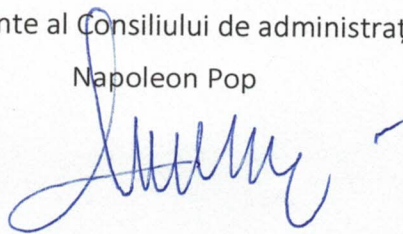 nte al Consiliului de administraț
Napoleon Pop